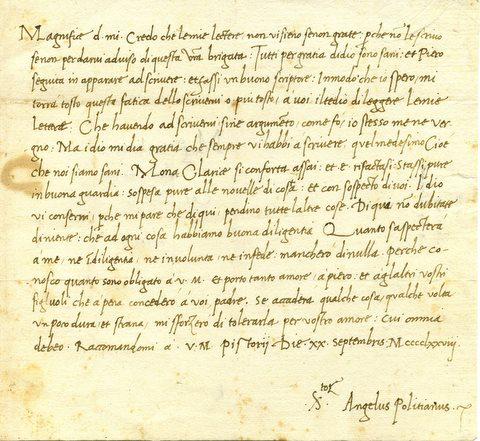 Magnifice d. mi. Credo che le mie lettere, non vi sieno senon grate; pche nō le scrivo
senon per darvi adviso di questa vrā brigata: Tutti per gratia didio sono sani: et Piero
seguita in apparare ad scrivere: et fassi un buono scriptore: In modo che io spero, mi
torrà tosto questa fatica dello scrivervi o piu tosto, a voi il tedio di leggere le mie
lettere. Che havendo ad scrivervi sine argumēto, come fo; io stesso me ne ver-
gno: Ma idio mi dia gratia che sempre vi habbi a scrivere quel medesimo Cioe
che noi siamo sani. Mona Clarice si conforta assai: et e rifactasi: Stassi pure
in buona guardia: Sospesa pure alle novelle di costà: et con sospecto di voi: Idio
vi conservi, pche mi pare che di qui, pendino tutte laltre cose. Di qua nō dubitate
di niente: che ad ogni cosa habbiamo buona diligentia. Quanto saspecterà
a me, ne ī diligentia, ne in voluntà, ne in fede, mancherò di nulla. perche co-
nosco quanto sono obligato a v. M. et porto tanto amore, a piero, et agl altri vostri
figliuoli che a pena concedero a voi padre. Se accaderà qualche cosa, qualche volta
un poro dura, et strana, mi sforzero di tolerarla per vostro amore: Cui omnia
debeo. Raccomandomi a. V. M. Pistorii Die. xx. Septembris. Mcccclxxviii.
S.tor Angelus Politianus.